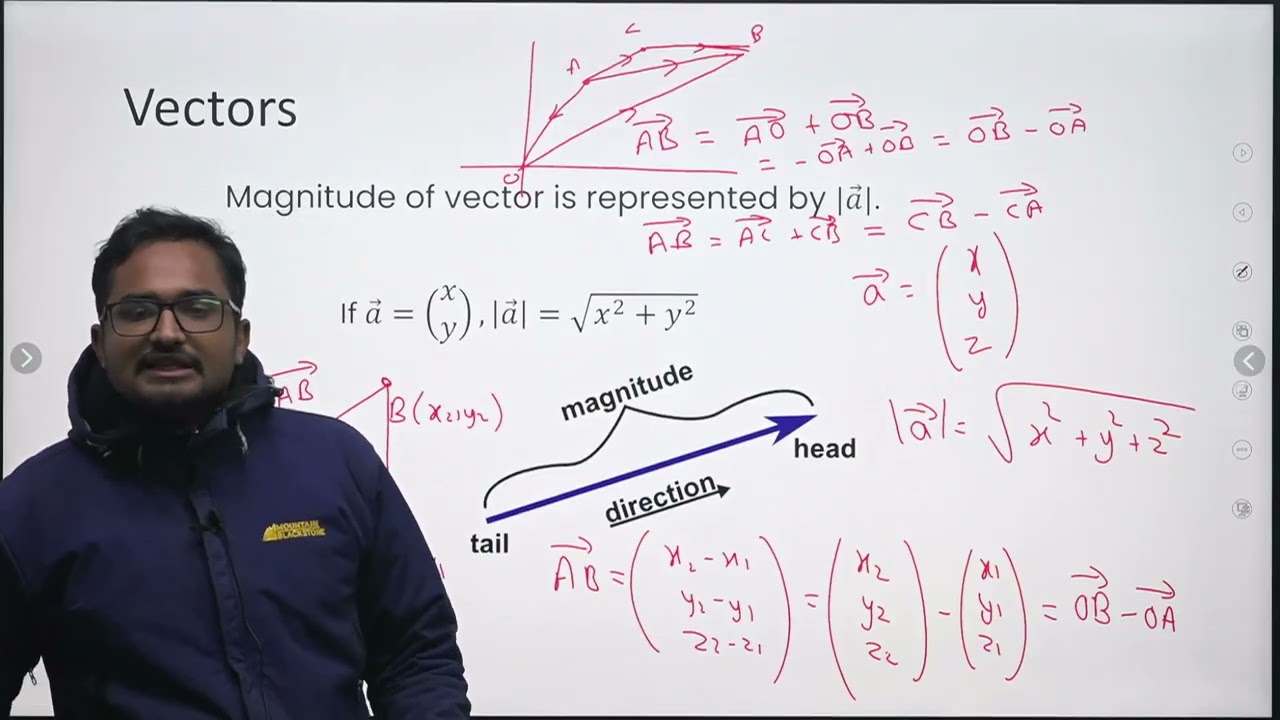 Vectors
A
C
B
O
\overrightarrow{AB} = \overrightarrow{AO} + \overrightarrow{OB}
= -\overrightarrow{OA} + \overrightarrow{OB} = \overrightarrow{OB} - \overrightarrow{OA}
Magnitude of vector is represented by |\vec{a}|.
\overrightarrow{AB} = \overrightarrow{AC} + \overrightarrow{CB} = \overrightarrow{CB} - \overrightarrow{CA}
If \vec{a} = \begin{pmatrix} x \\ y \end{pmatrix}, |\vec{a}| = \sqrt{x^2 + y^2}
\vec{a} = \begin{pmatrix} x \\ y \\ z \end{pmatrix}
\overrightarrow{AB}
B(x_2, y_2)
magnitude
head
direction
tail
|\vec{a}| = \sqrt{x^2 + y^2 + z^2}
MOUNTAIN
BLACKSTONE
\overrightarrow{AB} = \begin{pmatrix} x_2 - x_1 \\ y_2 - y_1 \\ z_2 - z_1 \end{pmatrix} = \begin{pmatrix} x_2 \\ y_2 \\ z_2 \end{pmatrix} - \begin{pmatrix} x_1 \\ y_1 \\ z_1 \end{pmatrix} = \overrightarrow{OB} - \overrightarrow{OA}